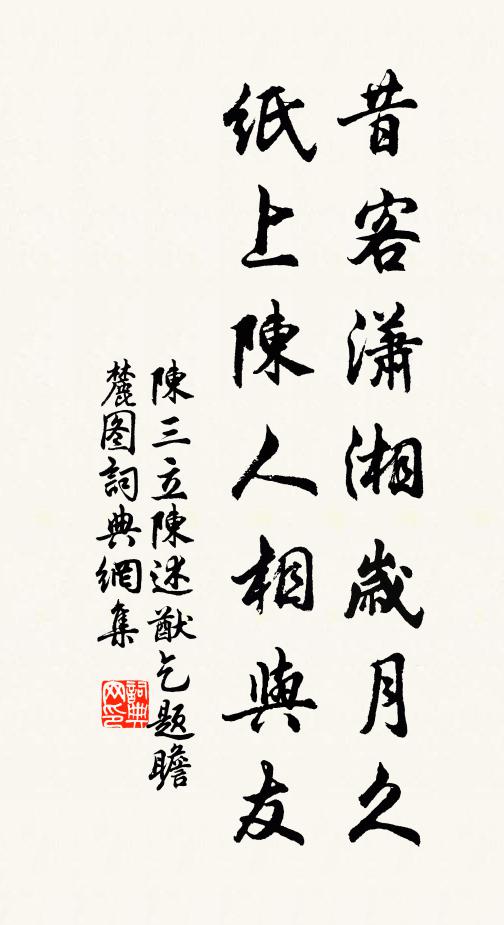 昔客瀟湘歲月久
紙上陳人相與友
陳三立陳述猷乞題瞻
麓图詞典網集
詞典网印